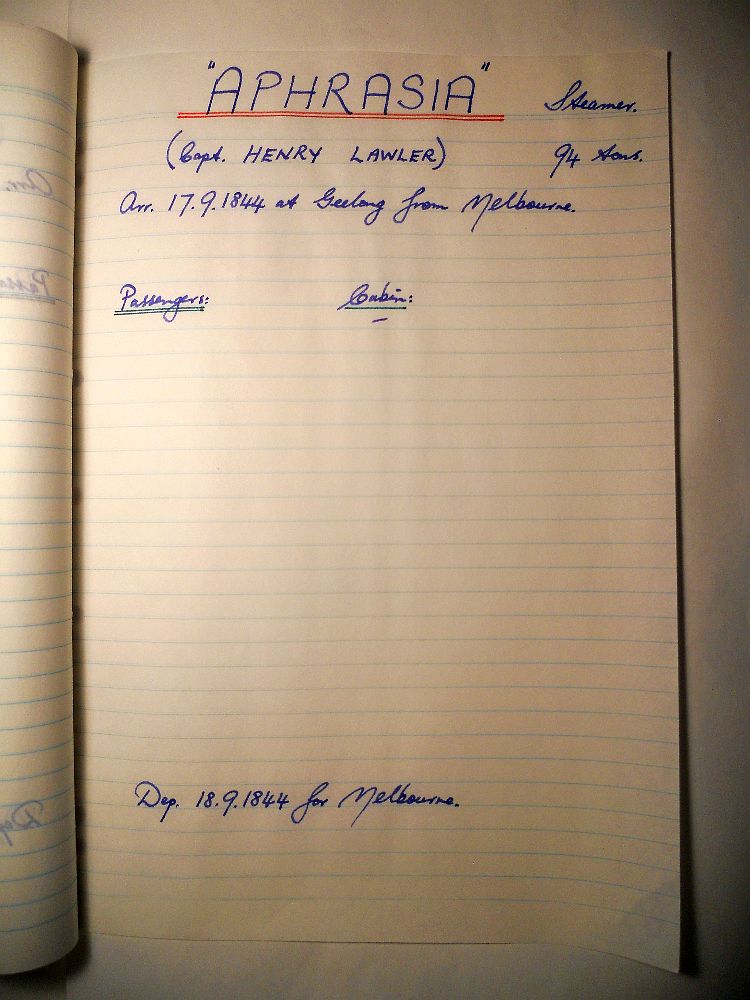 "APHRASIA" Steamer.
(Capt. HENRY LAWLER) 94 tons.
Arr. 17.9.1844 at Geelong from Melbourne.
Passengers: Cabin:
–
Dep. 18.9.1844 for Melbourne.